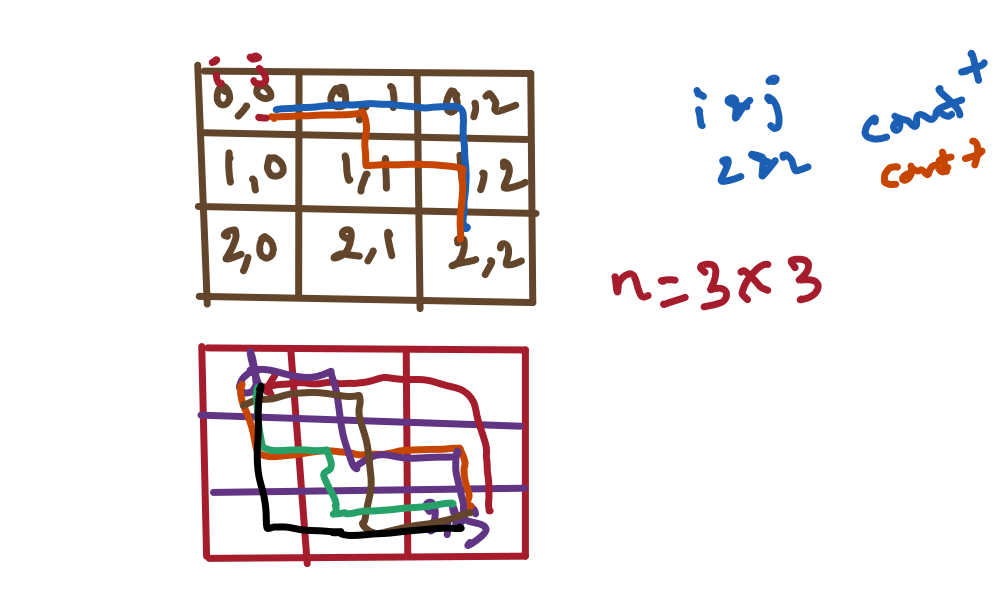 i j
0,0 0,1 0,2
1,0 1,1 1,2
2,0 2,1 2,2
i x j
2 x 2
count +
count +
n = 3 x 3